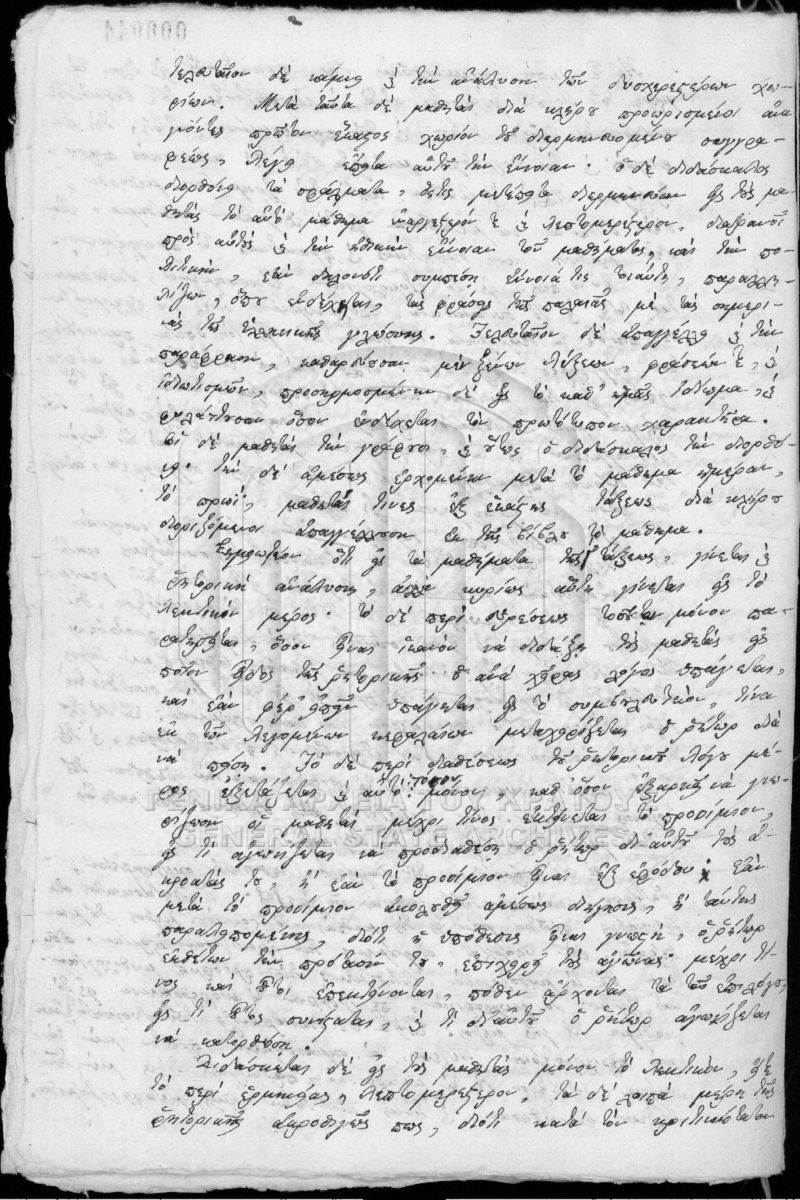 τελευταῖον δὲ κάμνει καὶ τὴν ἀνάλυσιν τῶν δυσχερεστέρων χω-
ρίων. Μετὰ ταῦτα δὲ μαθηταὶ διὰ κλήρου προωρισμένοι ἀνα
γνόντες πρῶτον ἕκαστος χωρίον τοῦ διερμηνευομένου συγγρα-
φέως, λέγει ἔπειτα αὐτοῦ τὴν ἔννοιαν· ὁ δὲ διδάσκαλος
διορθώσας τὰ σφάλματα, ὅστις μετέπειτα διερμηνεύων εἰς τοὺς μα-
θητὰς τὸ αὐτὸ μάθημα ἐναργέστερόν τε καὶ λεπτομερέστερον, διασαφεῖ
πρὸς αὐτοὺς καὶ τὴν ἠθικὴν ἔννοιαν τοῦ μαθήματος, καὶ τὴν πο-
λιτικὴν, ἐὰν δηλονότι συμπέσῃ ἔννοιά τις τοιαύτη, παραλλη-
λίζων, ὅπου ἐνδέχεται, τὰς φράσεις τῆς παλαιᾶς μὲ τὰς σημερι-
νὰς τῆς ἑλληνικῆς γλώσσης. Τελευταῖον δὲ ἀπαγγέλλει καὶ τὴν
παράφρασιν, καθαρεύουσαν μὲν ξένων λέξεων, φράσεών τε, καὶ
ἰδιωτισμῶν, προσηρμοσμένην δὲ εἰς τὸ καθ' ἡμᾶς ἰδίωμα, καὶ
φυλάττουσαν ὅσον ἐνδέχεται τὸν πρωτότυπον χαρακτῆρα.
οἱ δὲ μαθηταὶ τὴν γράφουσι, καὶ οὕτως ὁ διδάσκαλος τὴν διορθό-
νει· τὴν δὲ ἀμέσως ἐρχομένην μετὰ τὸ μάθημα ἡμέραν,
τὸ πρωΐ, μαθηταί τινες ἐξ ἑκάστης τάξεως διὰ κλήρου
διοριζόμενοι ἀπαγγέλλουσιν ἐκ τῆς βίβλου τὸ μάθημα.
Σημειωτέον ὅτι εἰς τὰ μαθήματα τῆς τάξεως, γίνεται καὶ
ῥητορικὴ ἀνάλυσις, ἀλλὰ κυρίως αὕτη γίνεται εἰς τὸ
λεκτικὸν μέρος· τὸ δὲ περὶ εὑρέσεως τοσοῦτον μόνον πα-
ρατηρεῖται, ὅσον εἶναι ἱκανὸν νὰ διδάξῃ τοὺς μαθητὰς εἰς
ποῖον εἶδος τῆς ῥητορικῆς ὁ ἀνὰ χεῖρας λόγος ὑπάγεται,
καὶ ἐὰν φέρ' εἰπεῖν ὑπάγεται εἰς τὸ συμβουλευτικὸν, τίνα
ἐκ τῶν λεγομένων κεφαλαίων μεταχειρίζεται ὁ ῥήτωρ διὰ
νὰ πείσῃ. Τὸ δὲ περὶ διαθέσεως τοῦ ῥητορικοῦ λόγου μέ-
ρος ἐξετάζεται καὶ αὐτὸ τόσον μόνον, καθ' ὅσον ἐξαρκεῖ νὰ γνω-
ρίζωσιν οἱ μαθηταὶ μέχρι τίνος ἐκτείνεται τὸ προοίμιον,
εἰς τί ἀγωνίζεται νὰ προδιαθέσῃ ὁ ῥήτωρ δι' αὐτοῦ τοὺς ἀ-
κροατάς του, ἢ ἐὰν τὸ προοίμιον εἶναι ἐξ ἐφόδου· ἐὰν
μετὰ τὸ προοίμιον ἀκολουθῇ ἀμέσως διήγησις, ἢ ταύτης
παραλειπομένης, διότι ἡ ὑπόθεσις εἶναι γνωστὴ, ὁ ῥήτωρ
ἐκθέτων τὴν πρότασίν του, ἐπιχειρεῖ τοὺς ἀγῶνας· μέχρι τί-
νος καὶ οὗτοι ἐπεκτείνονται, πόθεν ἄρχονται τὰ τοῦ ἐπιλόγου,
εἰς τί οὗτος συνίσταται, καὶ τί δι' αὐτοῦ ὁ ῥήτωρ ἀγωνίζεται
νὰ κατορθώσῃ.
Διδάσκεται δὲ εἰς τοὺς μαθητὰς μόνον τὸ λεκτικὸν, εἴτε
τὸ περὶ ἑρμηνείας λεπτομερέστερον, τὰ δὲ λοιπὰ μέρη τῆς
ῥητορικῆς ἀκροθιγῶς πως, διότι κατὰ τὸν κριτικώτατον
ΓΕΝΙΚΑ ΑΡΧΕΙΑ ΤΟΥ ΚΡΑΤΟΥΣ
GENERAL STATE ARCHIVES